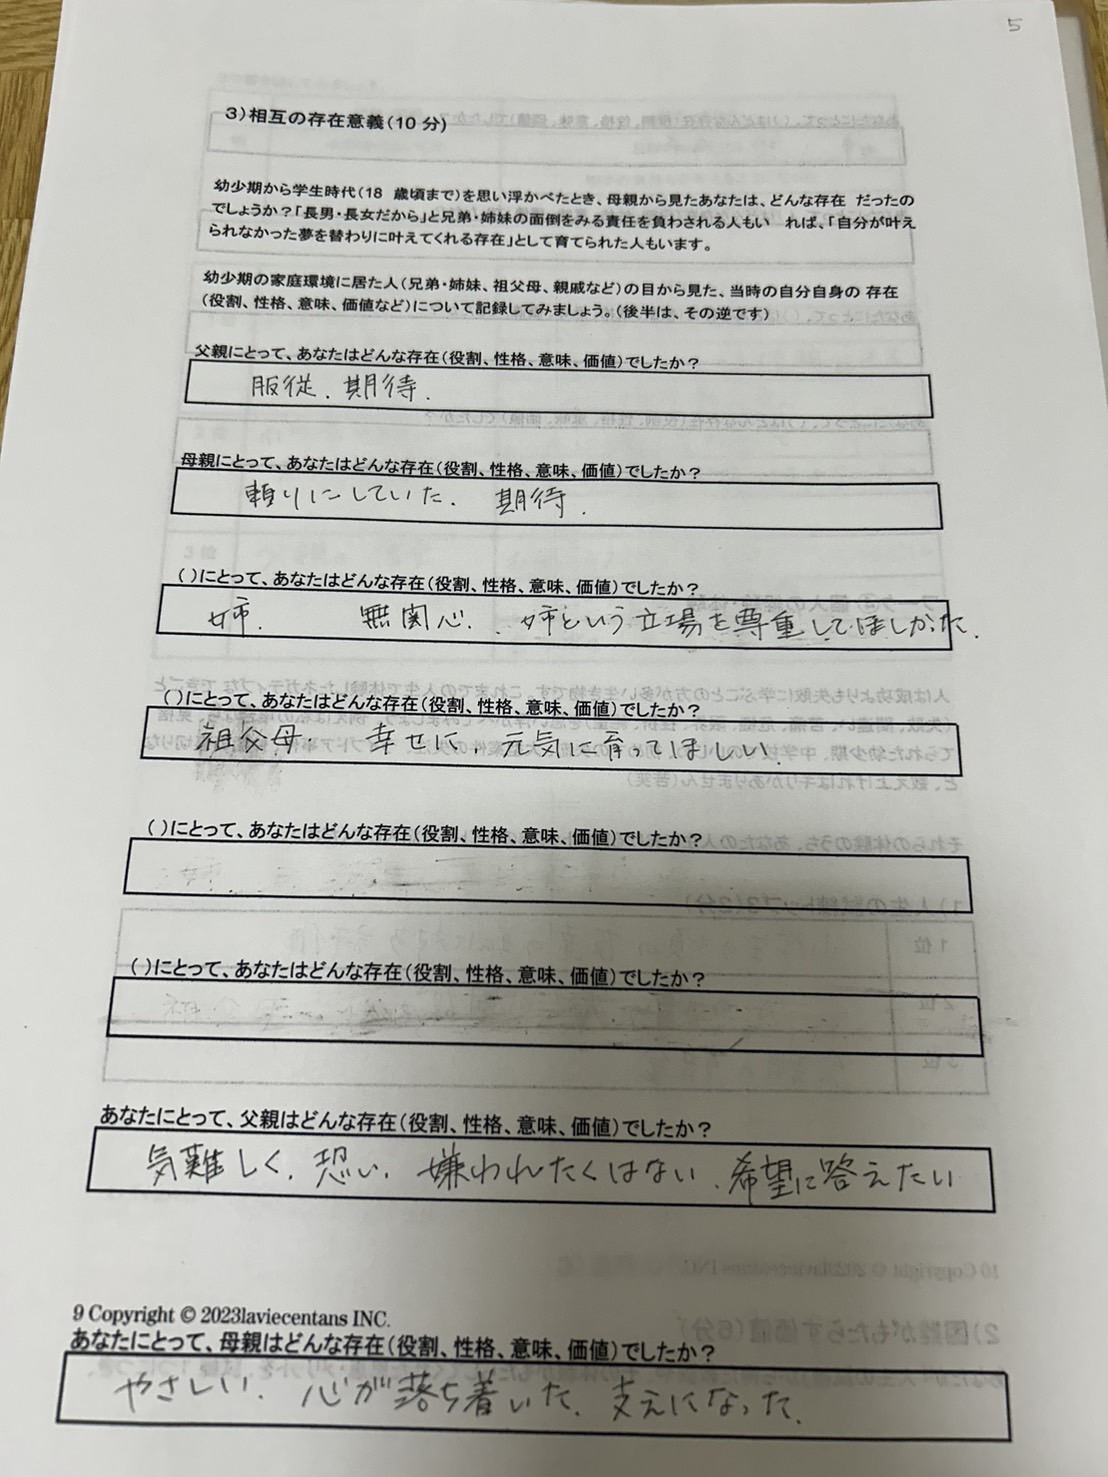 5
3)相互の存在意義(10 分)
幼少期から学生時代(18 歳頃まで)を思い浮かべたとき、母親から見たあなたは、どんな存在 だったの
でしょうか?「長男・長女だから」と兄弟・姉妹の面倒をみる責任を負わされる人もい れば、「自分が叶え
られなかった夢を替わりに叶えてくれる存在」として育てられた人もいます。
幼少期の家庭環境に居た人(兄弟・姉妹、祖父母、親戚など)の目から見た、当時の自分自身の 存在
(役割、性格、意味、価値など)について記録してみましょう。(後半は、その逆です)
父親にとって、あなたはどんな存在(役割、性格、意味、価値)でしたか?
服従、期待.
母親にとって、あなたはどんな存在(役割、性格、意味、価値)でしたか?
頼りにしていた. 期待.
()にとって、あなたはどんな存在(役割、性格、意味、価値)でしたか?
姉. 無関心. 姉という立場を尊重してほしかった.
()にとって、あなたはどんな存在(役割、性格、意味、価値)でしたか?
祖父母. 幸せに、元気に育ってほしい.
()にとって、あなたはどんな存在(役割、性格、意味、価値)でしたか?
()にとって、あなたはどんな存在(役割、性格、意味、価値)でしたか?
あなたにとって、父親はどんな存在(役割、性格、意味、価値)でしたか?
気難しく、恐い、嫌われたくはない、希望に答えたい
9 Copyright © 2023laviecentans INC.
あなたにとって、母親はどんな存在(役割、性格、意味、価値)でしたか?
やさしい. 心が落ち着いた. 支えになった.